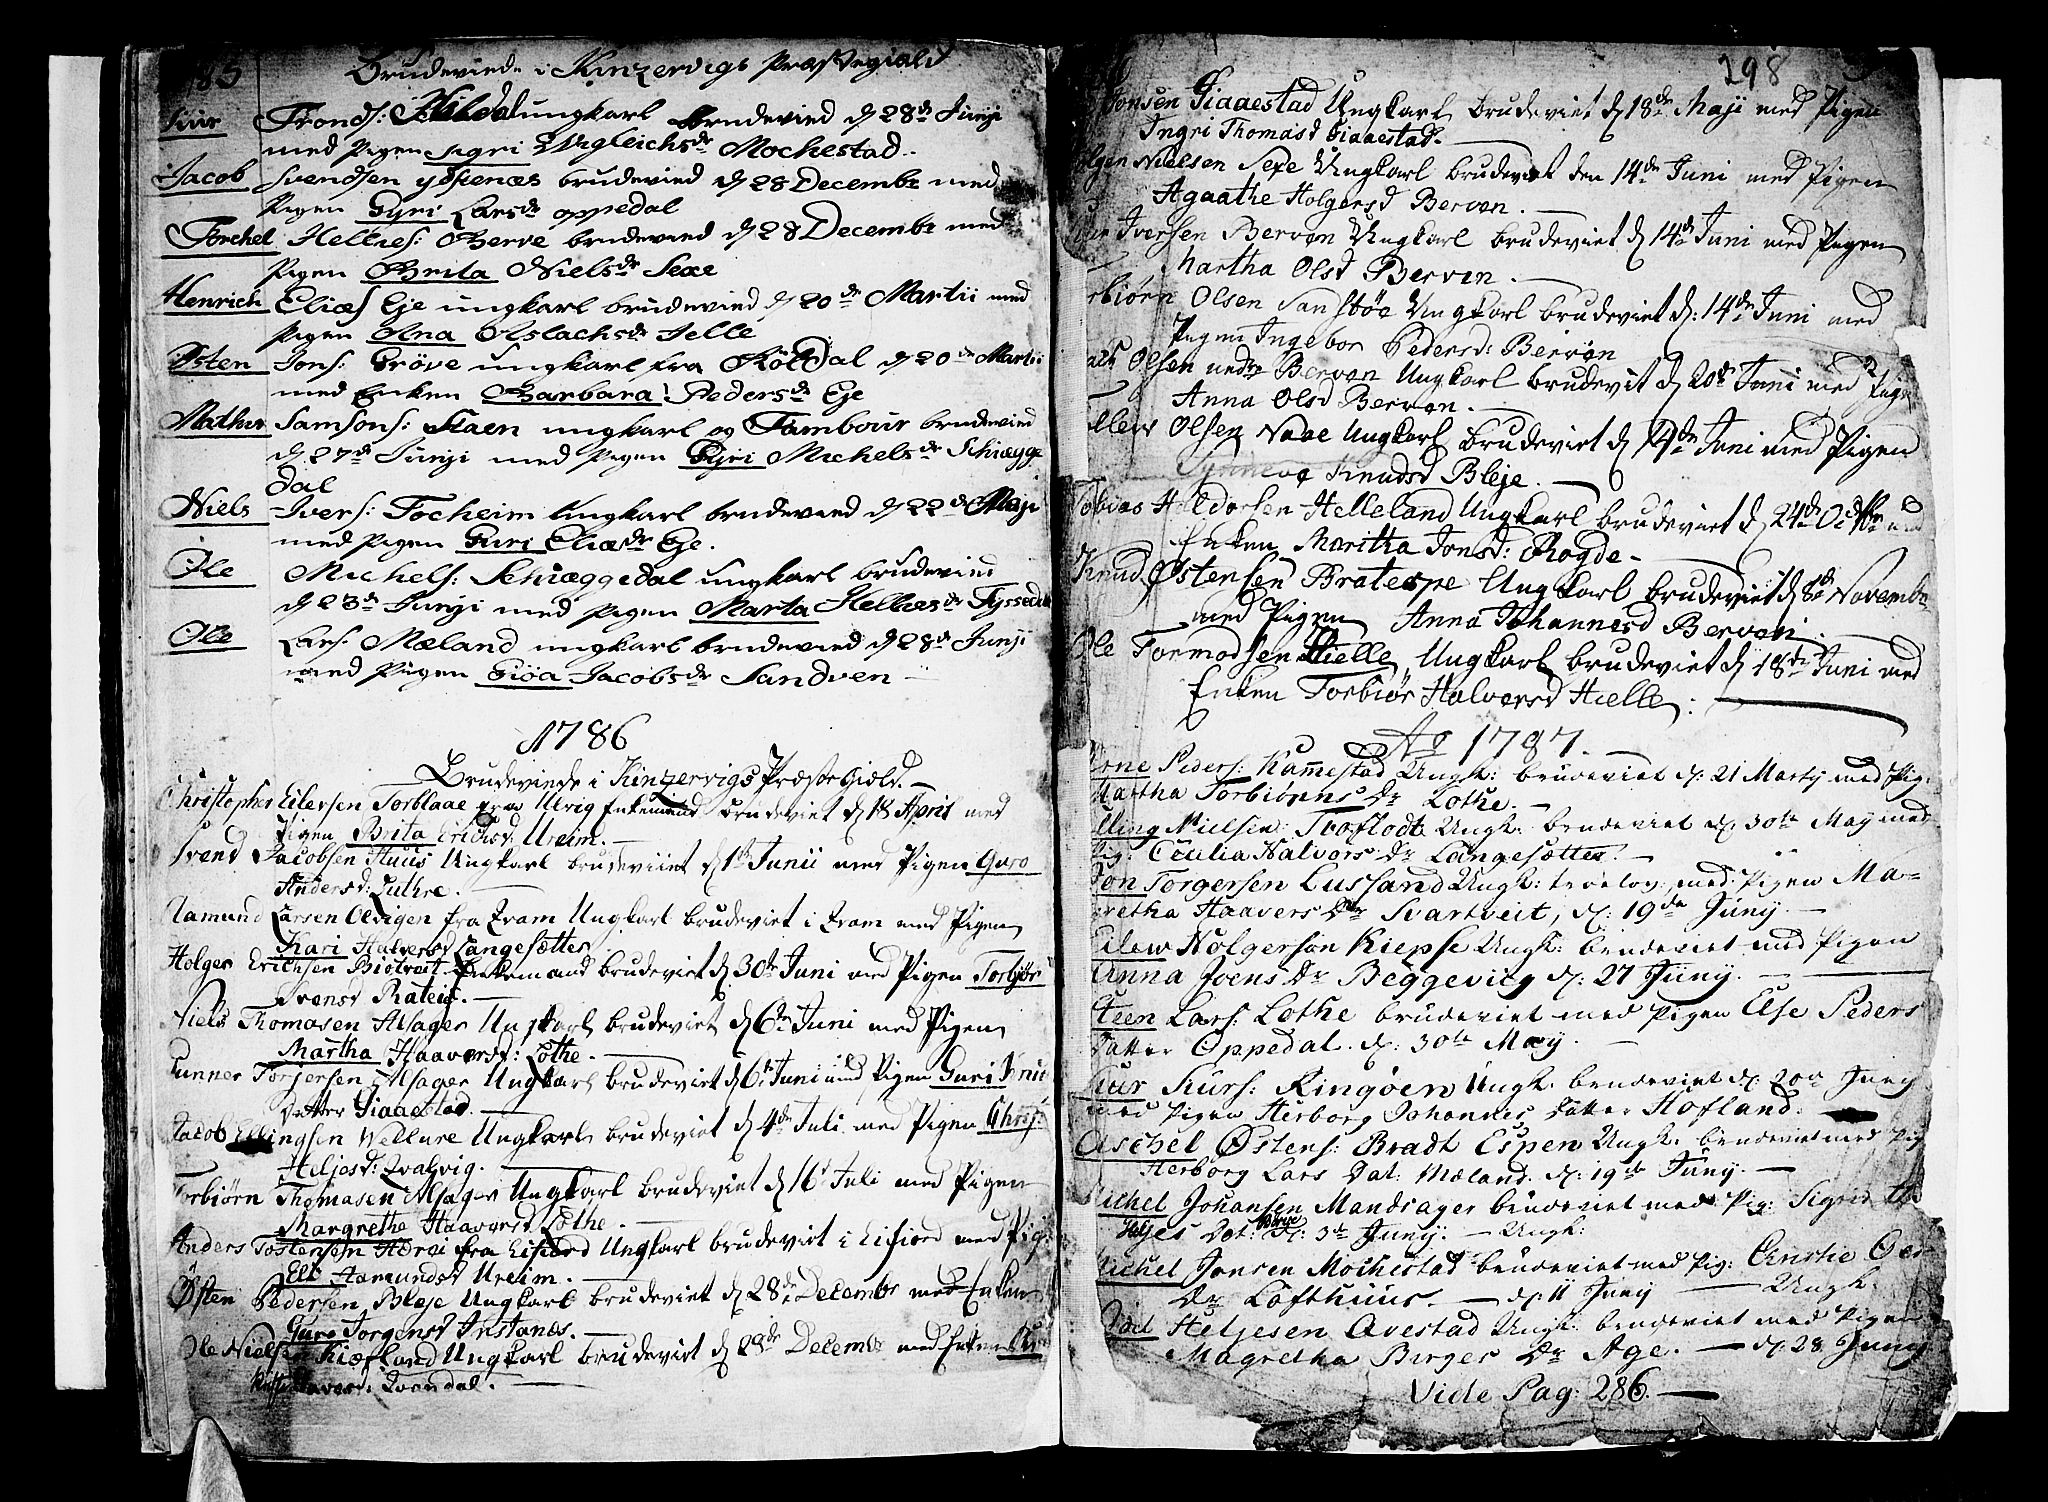 85 Brudeviede i Kinzervigs Præstegiæld
Siur Tronds: Hildal ungkarl brudevied d 28de Junji
med Pigen Sigri Wigleichsdr Mochestad.
Jacob Svendsen Ystenæs brudevied d 28 Decembr med
Pigen Gyri Larsdr oppedal
Torchel Hellies: Berve brudevied d 28 Decembr med
Pigen Brita Nielsdr Sexe
Henrich Eliæs Eje ungkarl brudevied d 20de Martii med
Pigen Anna Aslachsdr Jelle
Østen Jons: Grøve ungkarl fra Röldal d 20de Martii
med Enken Barbara Pedersdr Eje
Mathis Samsons: Staen ungkarl og Tambour brudevied
d 27de Junji med Pigen Gyri Michelsdr Schiægge
dal
Niels Ivers: Tocheim Ungkarl brudevied d 22de Maji
med Pigen Guri Eliædr Eje.
Ole Michels: Schiæggedal ungkarl brudevied
d 23de Junji med Pigen Marta Helliesdr Tyssedal
Ole Lars: Mæland ungkarl brudevied d 28de Junji
med Pigen Giøa Jacobsdr Sandven
1786
Brudeviede i Kinzervigs Præstegiæld.
Christopher Eilersen Torblaae fra Ulvig Enkemand brudeviet d 18 April med
Pigen Brita Erichsd Ureim.
Svend Jacobsen Huus Ungkarl brudeviet d 1te Junii med Pigen Guro
Andersd: Luthre.
Aamund Larsen Olvigen fra Kvam Ungkarl brudeviet i Kvam med Pigen
Kari Halversd Langesætter
Holger Erichsen Biotveit Enkemand brudeviet d 30te Juni med Pigen Torbiør
Svensd Rateig.
Niels Thomasen Alsager Ungkarl brudeviet d 6te Juni med Pigen
Martha Haaversd: Lothe.
Gunner Torjersen Alsager Ungkarl brudeviet d 6te Juni med Pigen Guri Knud
Datter Siaaestad.
Jacob Ellingsen Wellure Ungkarl brudeviet d 4de Juli med Pigen Chrij:
Heljesd: Kvalvig.
Torbiørn Thomasen Alsager Ungkarl brudeviet d 16d Juli med Pigen
Margrethe Haaversd Lothe.
Anders Tostensen fra Eifiord Ungkarl brudeviet i Eifiord med Pig:
Eli Aamundsd Ureim.
Østen Pedersen Bleje Ungkarl brudeviet d 28de Decembr med Enken
Guro Jorgensd Instanes.
Ole Nielsen Kiæfland Ungkarl brudeviet d 29de Decembr med Enken
Haversd: Kvandal.
198
Jonsen Siaaestad Ungkarl brudeviet d 18de Maji med Pigen
Ingri Thomasd Siaaestad.
olger Nielsen Sexe Ungkarl brudeviet den 14de Juni med Pigen
Agaathe Holgersd Berven.
Iversen Berven Ungkarl brudeviet d 14de Juni med Pigen
Martha Olsd Berven.
rbiørn Olsen Sandstøe Ungkarl brudeviet d: 14de Juni med
Pigen Ingebor Pedersd: Berven
Olsen undre Berven Ungkarl brudevit d 20de Juni med Pige
Anna Olsd Berven.
ellew Olsen Naae Ungkarl brudeviet d 24de Juni med Pigen
Synneve Knudsd Bleje.
Tobias Heldorsen Helleland Ungkarl brudeviet d 24de Octbr med
Enken Maritha Jonsd: Rogde
Knud Østensen Bratespe Ungkarl brudeviet d 8de Novembr
med Pigen Anna Johannesd Berven.
Ole Tormodsen Hielle Ungkarl brudeviet d 18de Juni med
Enken Torbiør Halversd Hielle:
Ao 1787.
Arne Peders: Hammestad Ungk: brudeviet d. 21 Martj med Pig:
Martha Torbiørns Dr Lothe.
Elling Nielsen: Traflodt Ungk: brudeviet d. 30te May med
Pig: Cecilia Halvors Dr Langesætter.
Jon Torgersen Lussand Ungk: trolov: med Pigen Ma-
gretha Haavers Dr Svartveit, d: 19de Junij.
Eilew Holgersøn Kiepse Ungk: brudeviet med Pigen
Anna Joens Dr Beggevig d: 27 Junij.
Steen Lars: Lothe brudeviet med Pigen Else Peders
Datter Oppedal. d: 30te May.
Siur Siurs: Ringøen Ungk: brudeviet d. 20de Junij
med Pigen Herborg Johannes Datter Hofland.
Aschel Østens: Bradt Espen Ungk: brudeviet med Pig
Herborg Lars Dat: Mæland. d: 19de Junij.
Michel Johansen Mandsager brudeviet med Pig: Sigrid
Heljes Dot: Børve d: 3de Junij. Ungk:
Michel Jonsen Mochestad brudeviet med Pig: Anstie
Dr Lofthuus. d. 11 Junij Ungk:
Heljesen Avestad Ungk: brudeviet med Pigen
Magretha Birges Dr Age. d. 28 Junij
Vide Pag: 286.